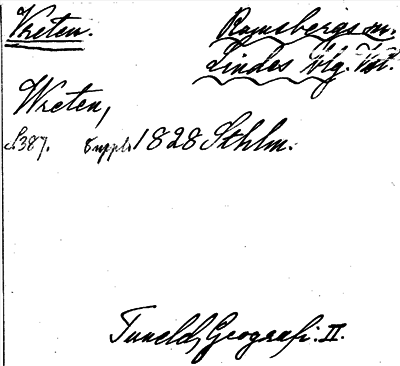 Vreten. Ramsbergs sn.
Lindes
Wreten,
s. 387. Suppl. 1828 Sthlm.
Tuneld, Geografi. II.